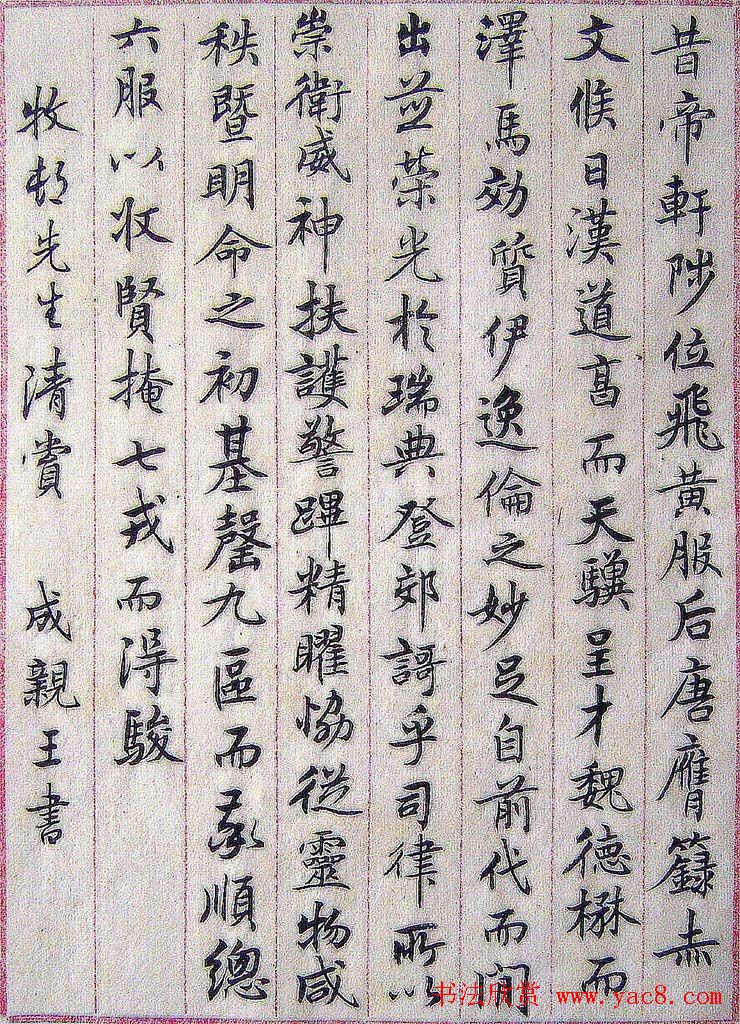 昔帝軒陟位飛黃服后唐膺籙赤
文候日漢道髙而天驥呈才魏德楙而
澤馬効質伊逸倫之妙足自前代而間
出並榮光於瑞典登郊謌乎司律所以
崇衛威神扶護警蹕精曜恊從靈物咸
秩暨明命之初基罄九區而率順總
六服以收賢掩七戎而得駿
牧邨先生清賞 成親王書
书法欣赏 www.yac8.com